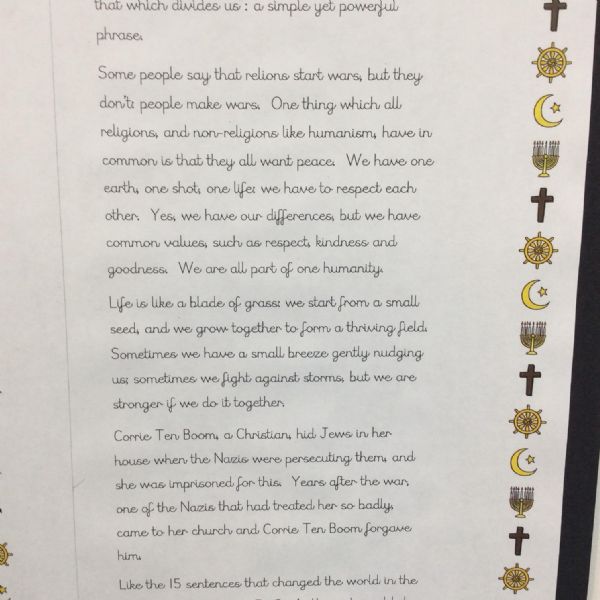 that which divides us : a simple yet powerful
phrase.
Some people say that relions start wars, but they
don't: people make wars. One thing which all
religions, and non-religions like humanism, have in
common is that they all want peace. We have one
earth, one shot, one life: we have to respect each
other. Yes, we have our differences, but we have
common values, such as respect, kindness and
goodness. We are all part of one humanity.
Life is like a blade of grass: we start from a small
seed, and we grow together to form a thriving field.
Sometimes we have a small breeze gently nudging
us; sometimes we fight against storms, but we are
stronger if we do it together.
Corrie Ten Boom, a Christian, hid Jews in her
house when the Nazis were persecuting them, and
she was imprisoned for this. Years after the war,
one of the Nazis that had treated her so badly,
came to her church and Corrie Ten Boom forgave
him.
Like the 15 sentences that changed the world in the